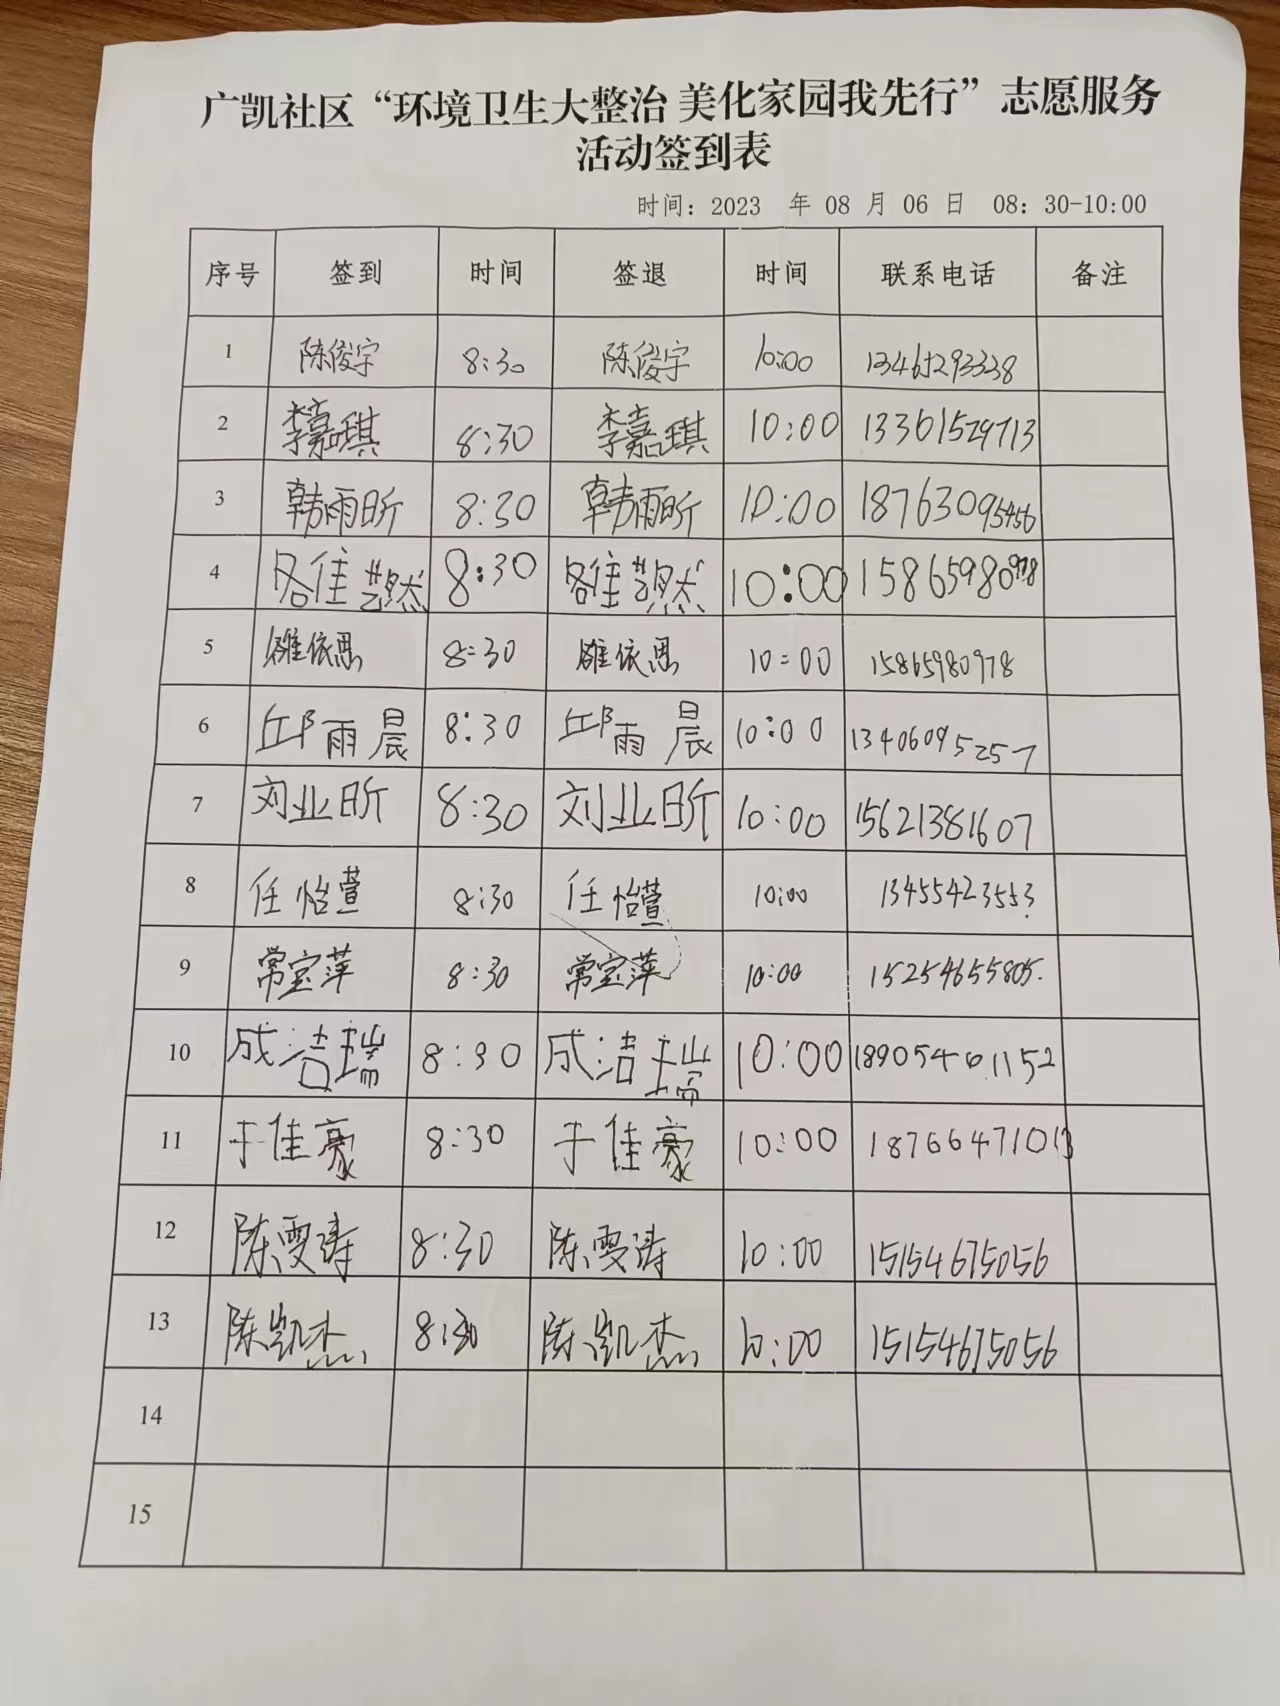 广凯社区“环境卫生大整治 美化家园我先行”志愿服务
活动签到表
时间：2023 年 08 月 06 日 08：30-10:00
序号 签到 时间 签退 时间 联系电话 备注
1 陈俊宇 8:30 陈俊宇 10:00 13465293338
2 李嘉琪 8:30 李嘉琪 10:00 13361529713
3 韩雨昕 8:30 韩雨昕 10:00 18763095456
4 8:30 10:00 15865980978
5 雒依思 8:30 雒依思 10:00 15865980978
6 邱雨晨 8:30 邱雨晨 10:00 13406095257
7 刘业昕 8:30 刘业昕 10:00 15621381607
8 任怡萱 8:30 任怡萱 10:00 13455423553
9 常宝萍 8:30 常宝萍 10:00 15254655805.
10 成洁瑞 8:30 成洁瑞 10:00 18905461152
11 于佳豪 8:30 于佳豪 10:00 18766471013
12 陈雯涛 8:30 陈雯涛 10:00 15154675056
13 陈凯杰 8:30 陈凯杰 10:00 15154675056
14
15